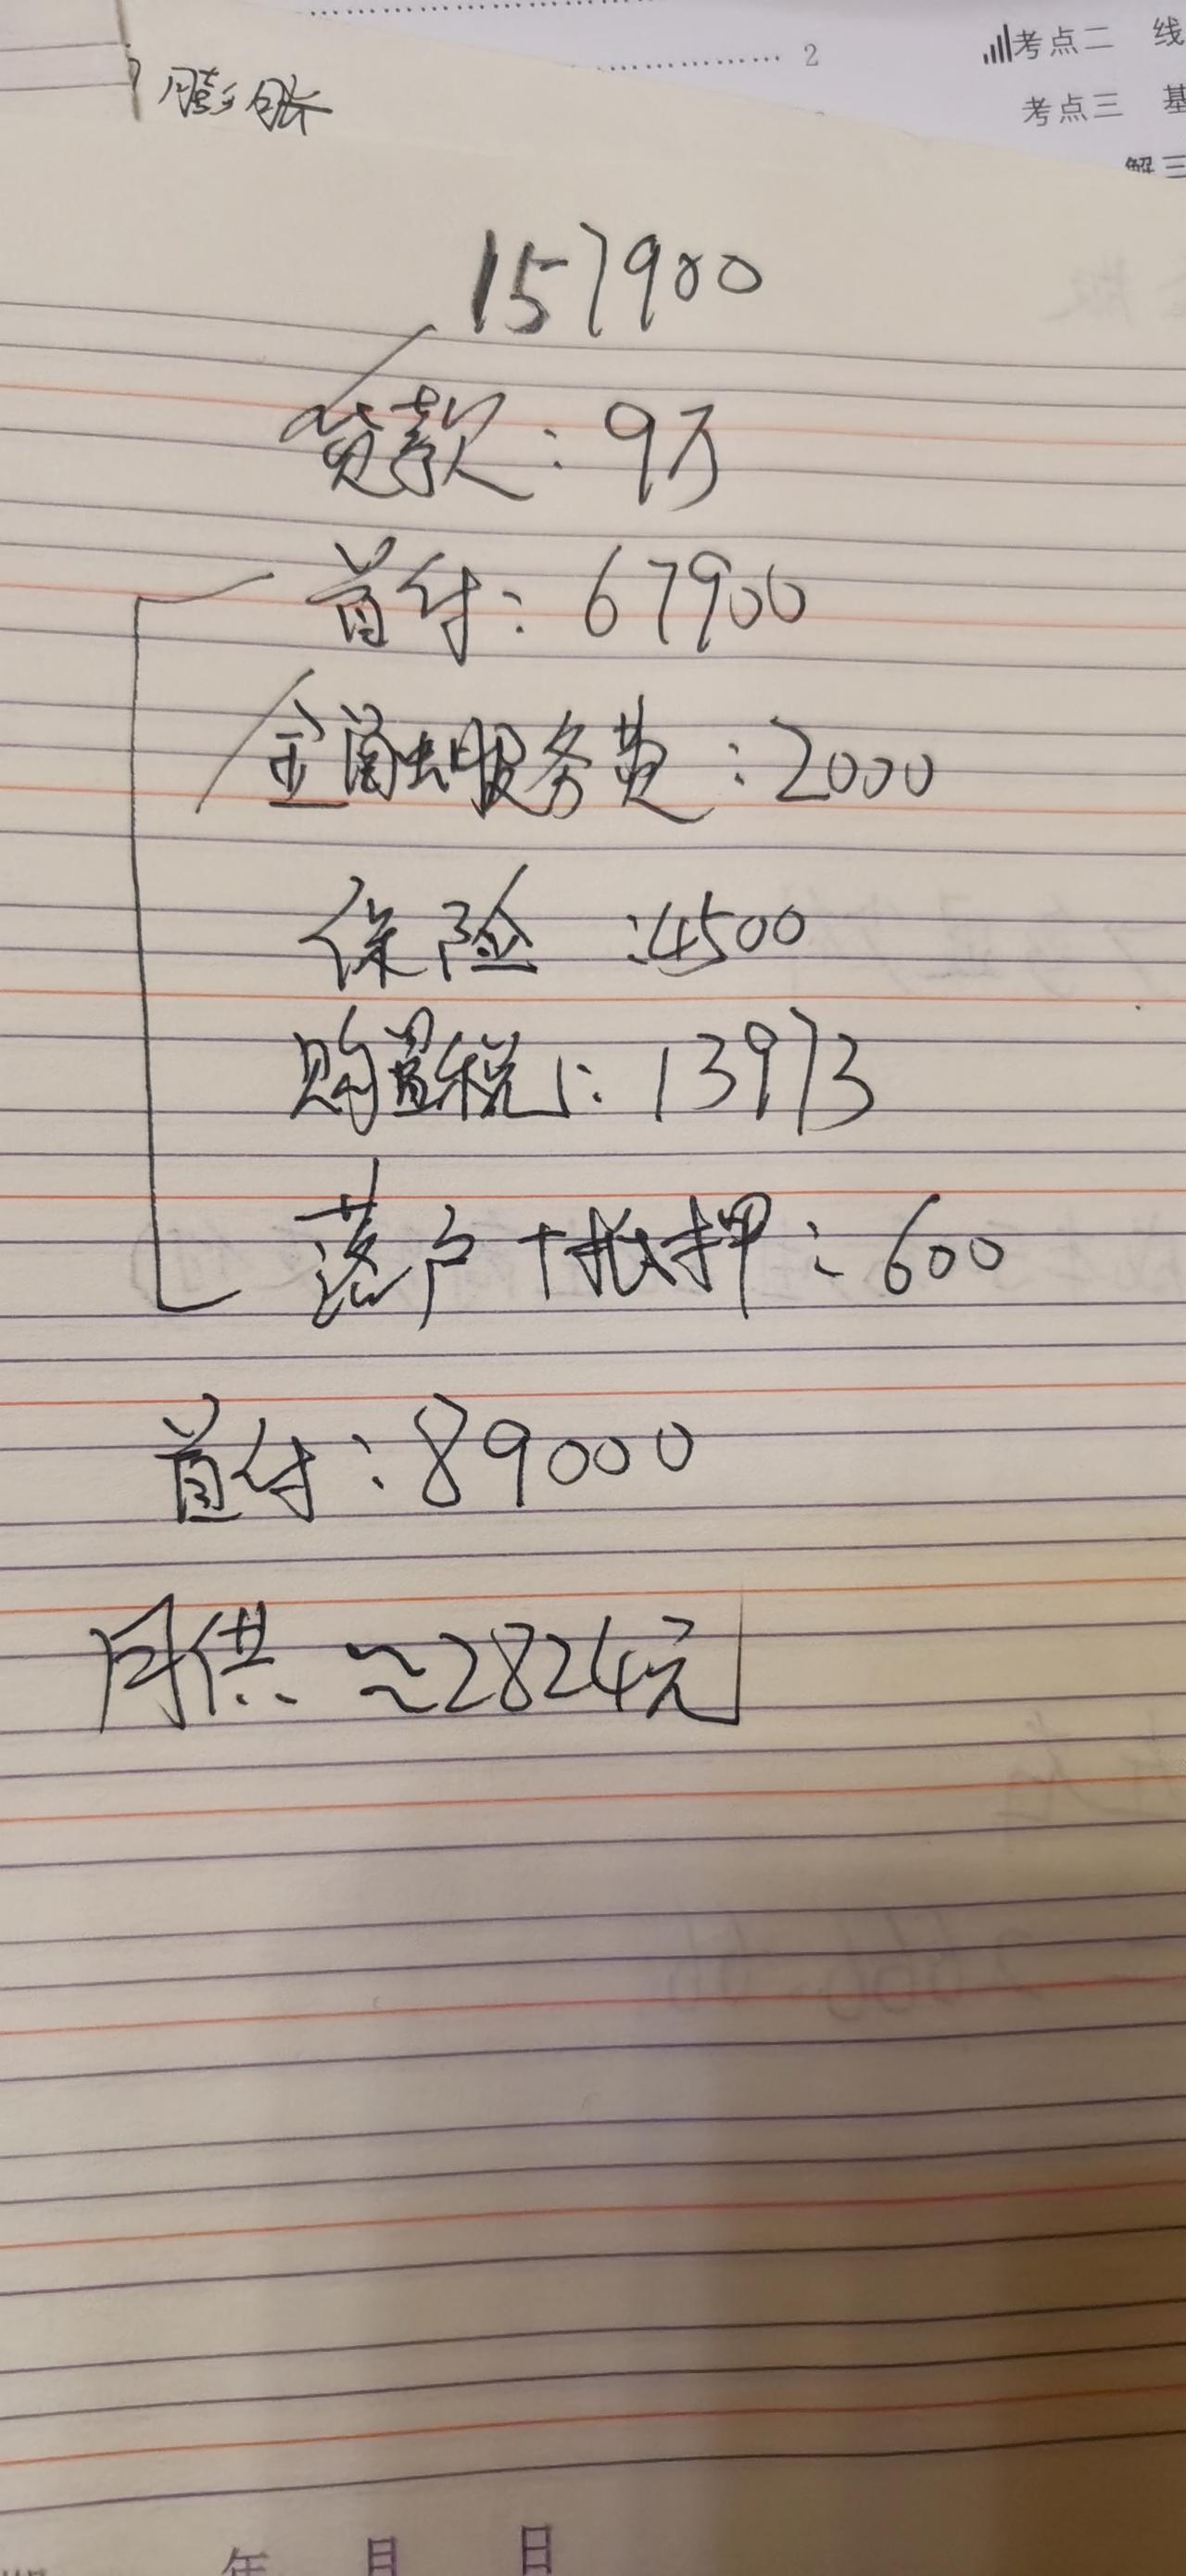 2
考点二 线
考点三 基
解三
膨胀
157900
贷款：9万
首付：67900
金融服务费：2000
保险：4500
购置税：13973
落户+抵押：600
首付：89000
月供≈2824元
年 月 日